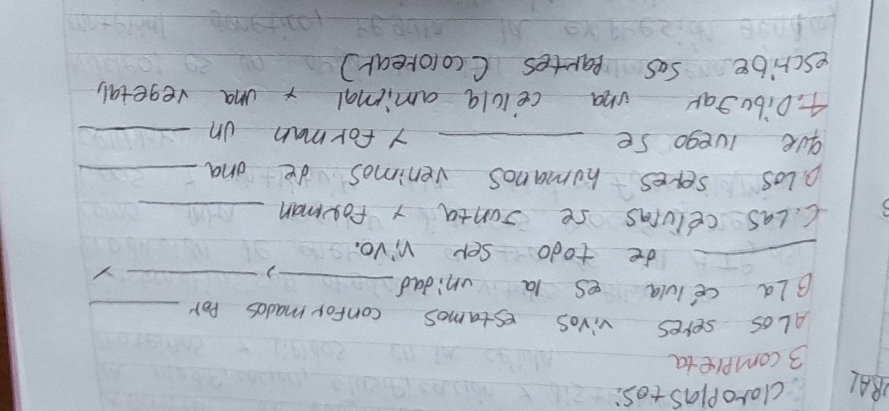 ORAL
cloroplastos:
3 completa
A Los seres vivos estamos conformados por ______
B La célula es la unidad ______, ______ y
______ de todo ser vivo.
C. Las células se junta y forman ______
D. Los seres humanos venimos de una ______
que luego se ______ y forman un ______
4. Dibujar una célula animal y una vegetal,
eschibe sas partes (colorear)